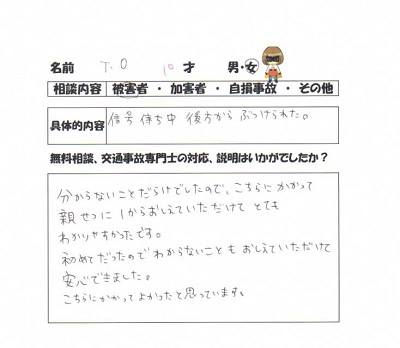 名前 T.O 10才 男・女
相談内容 被害者 ・ 加害者 ・ 自損事故 ・ その他
具体的内容 信号待ち中 後方からぶつけられた。
無料相談、交通事故専門士の対応、説明はいかがでしたか？
分からないことだらけでしたので、こちらにかかって
親せつに1からおしえていただけて とても
わかりやすかったです。
初めてだったのでわからないことも おしえていただけて
安心できました。
こちらにかかってよかったと思っています。